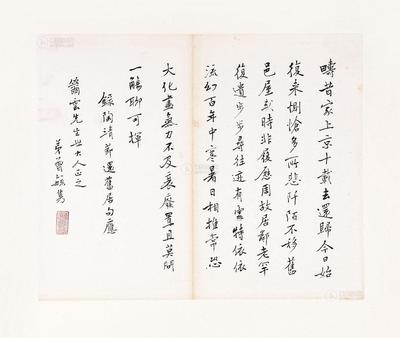 疇昔家上京十載去還歸今日始
復來惻愴多所悲阡陌不移舊
邑屋或時非履歷周故居鄰老罕
復遺步步尋往迹有處特依依
流幻百年中寒暑日相推常恐
大化盡氣力不及衰廢置且莫
一觴聊可揮
錄陶靖節還舊居句應
雲先生世大人正之
弟曾毓雋